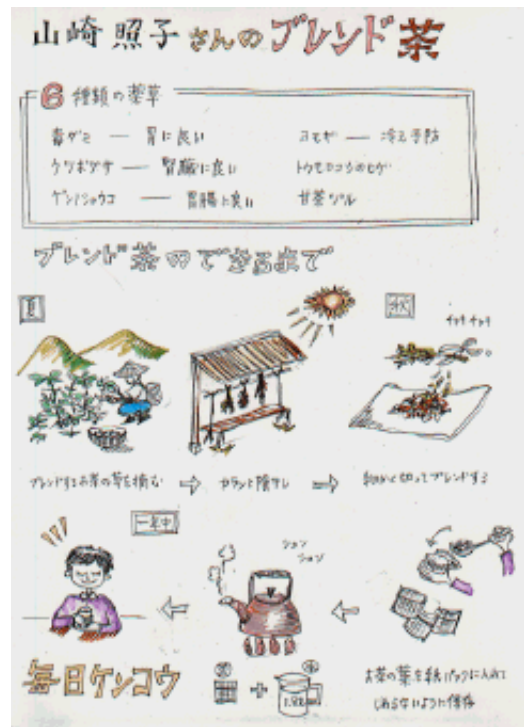 山崎照子さんのブレンド茶
6種類の薬草
毒ダミ — 胃に良い
ウツボグサ — 腎臓に良い
ゲンノショウコ — 胃腸に良い
ヨモギ — 冷え予防
トウモロコシのヒゲ
甘茶ヅル
ブレンド茶のできるまで
夏
秋
チョキチョキ
ブレンドするお茶の草を摘む ⇨ カラッと陰干し ⇨ 細かく切ってブレンドする
一年中
シュン
シュン
茶 + 水
お茶の葉を紙パックに入れて
しめらないように保存
毎日ケンコウ